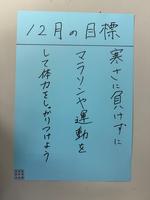 12月の目標
寒さに負けずに
マラソンや運動を
して体力をしっかりつけよう